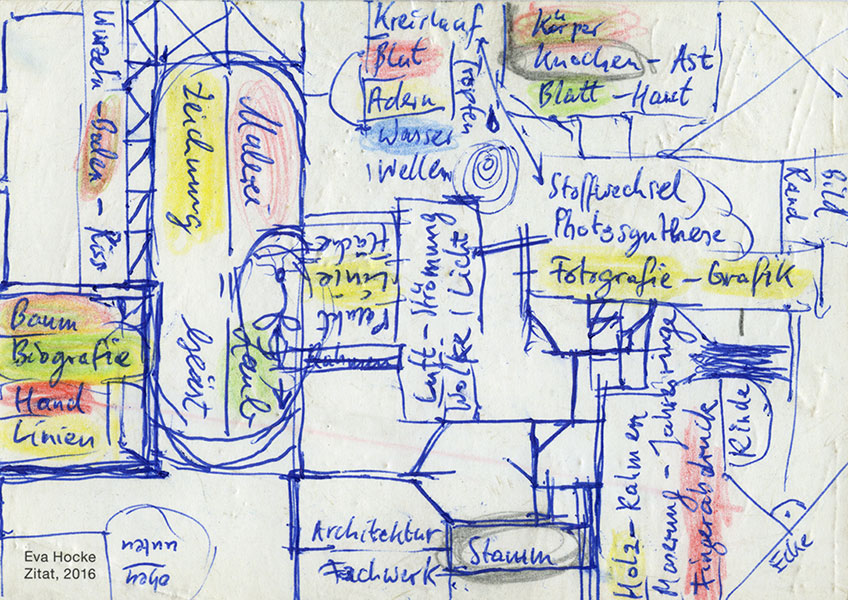 Kreislauf
Blut
Adern
Wasser
Wellen
Tropfen
Körper
Knochen – Ast
Blatt – Haut
Wurzeln – Boden – Riss
Zeichnung
Malerei
Geäst
Laub
Fläche
Linie
Punkt
Rahmen
Luft – Strömung
Wolke | Licht
Stoffwechsel
Photosynthese
Fotografie – Grafik
Bild
Rand
Baum
Biografie
Hand
Linien
Holz – Rahmen
Maserung – Jahresringe
Fingerabdruck
Rinde
Ecke
Architektur
Fachwerk
Stamm
oben
unten
Eva Hocke
Zitat, 2016